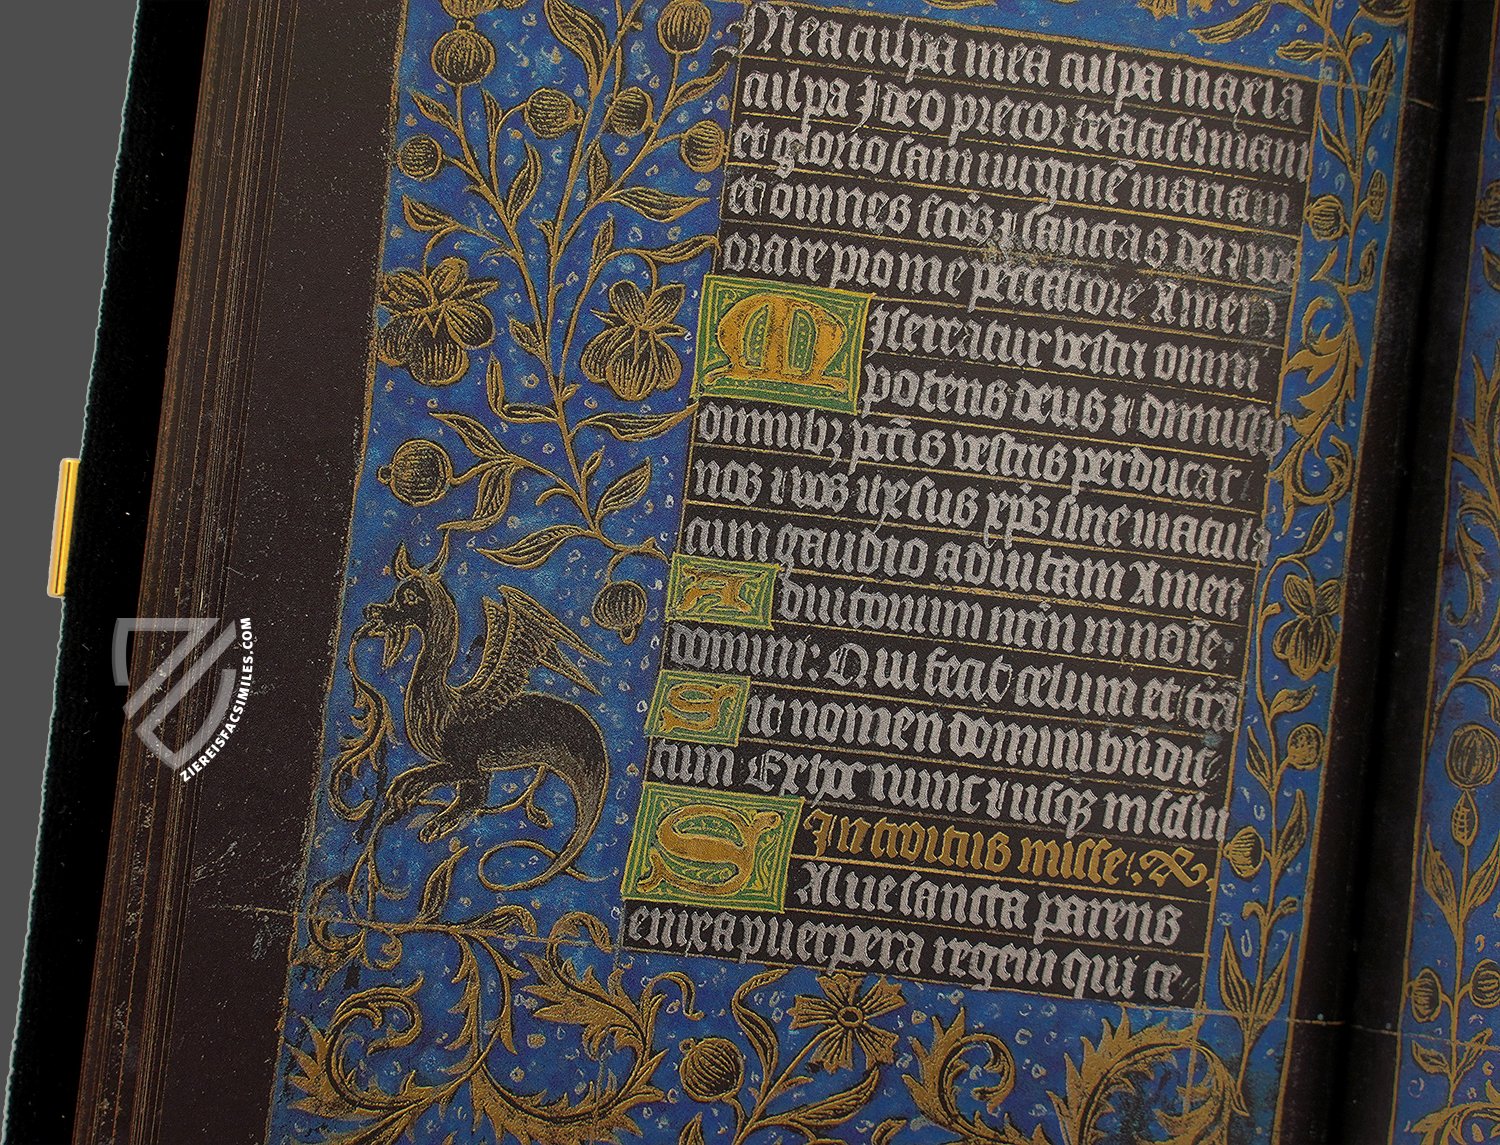 Mea culpa mea culpa maxia
culpa Ideo precor beatissimam
et gloriosam virginē mariam
et omnes scōs ⁊ sanctas dei ⁊ vos
orare pro me peccatore Amen
Misereatur vestri omni
potens deus ⁊ dimissis
omnibꝫ pctīs vestris perducat
nos ⁊ vos iħesus xp̄s sine macula
cum gaudio ad vitam Amen
Adiutorium nrm̄ in noīe
domini: Qui fecit celum et trā
Sit nomen domini bn̄dic
tum Ex hoc nunc ⁊ usqꝫ in sclm̄
Introitus misse.
Salve sancta parens
enixa puerpera regem qui ce
ZIEREISFACSIMILES.COM